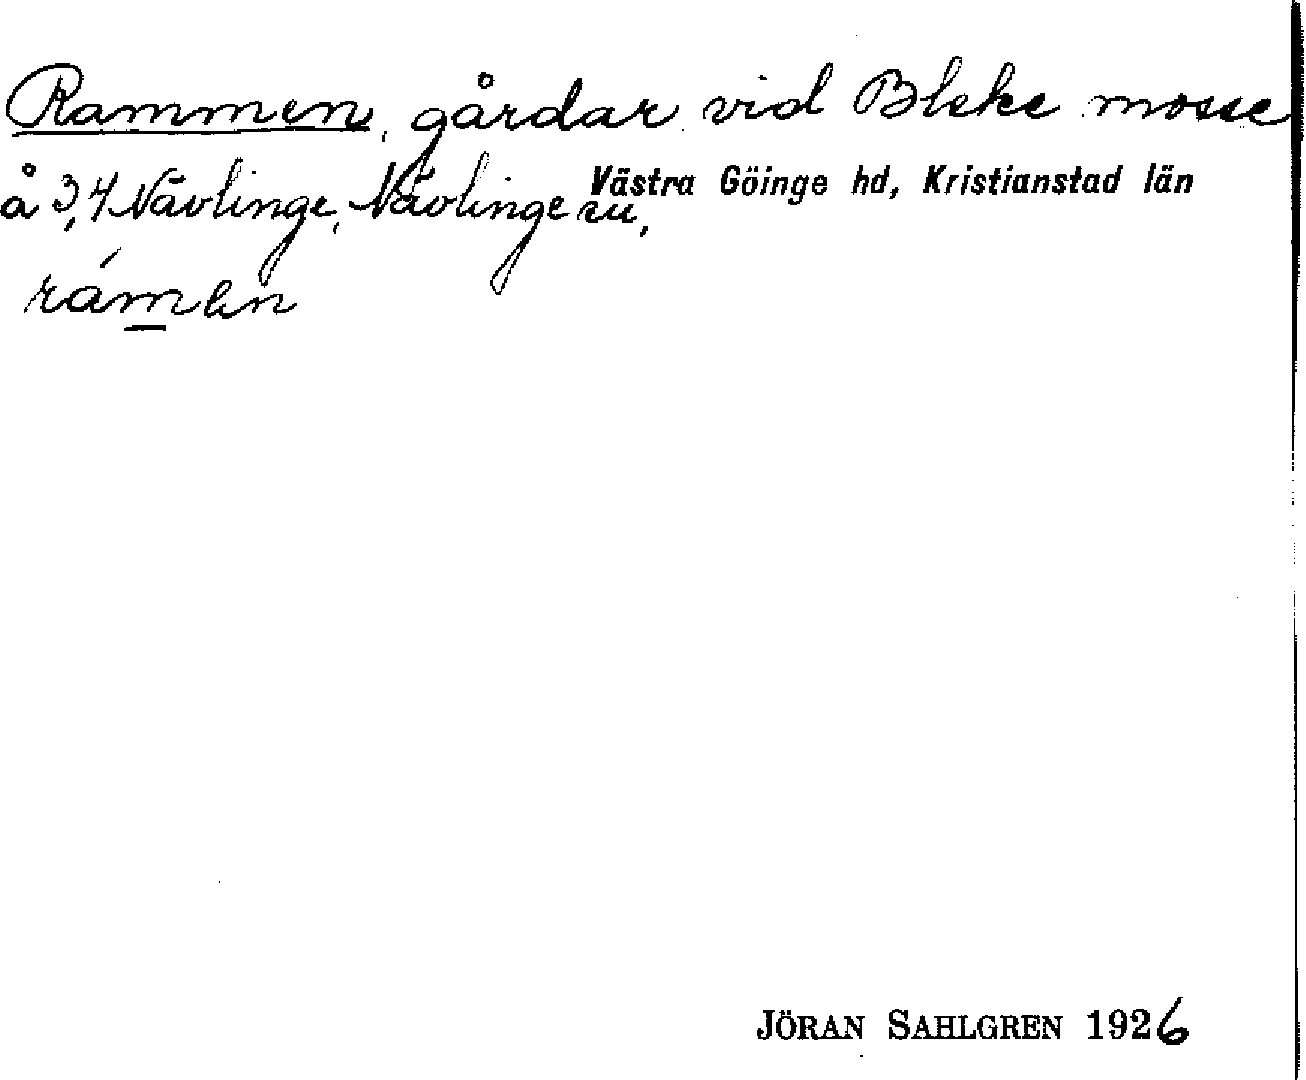 Rammen, gårdar vid Bleke mosse
å 3,4 Nävlinge, Nävlinge sn, Västra Göinge hd, Kristianstad län
rámen
JÖRAN SAHLGREN 1926